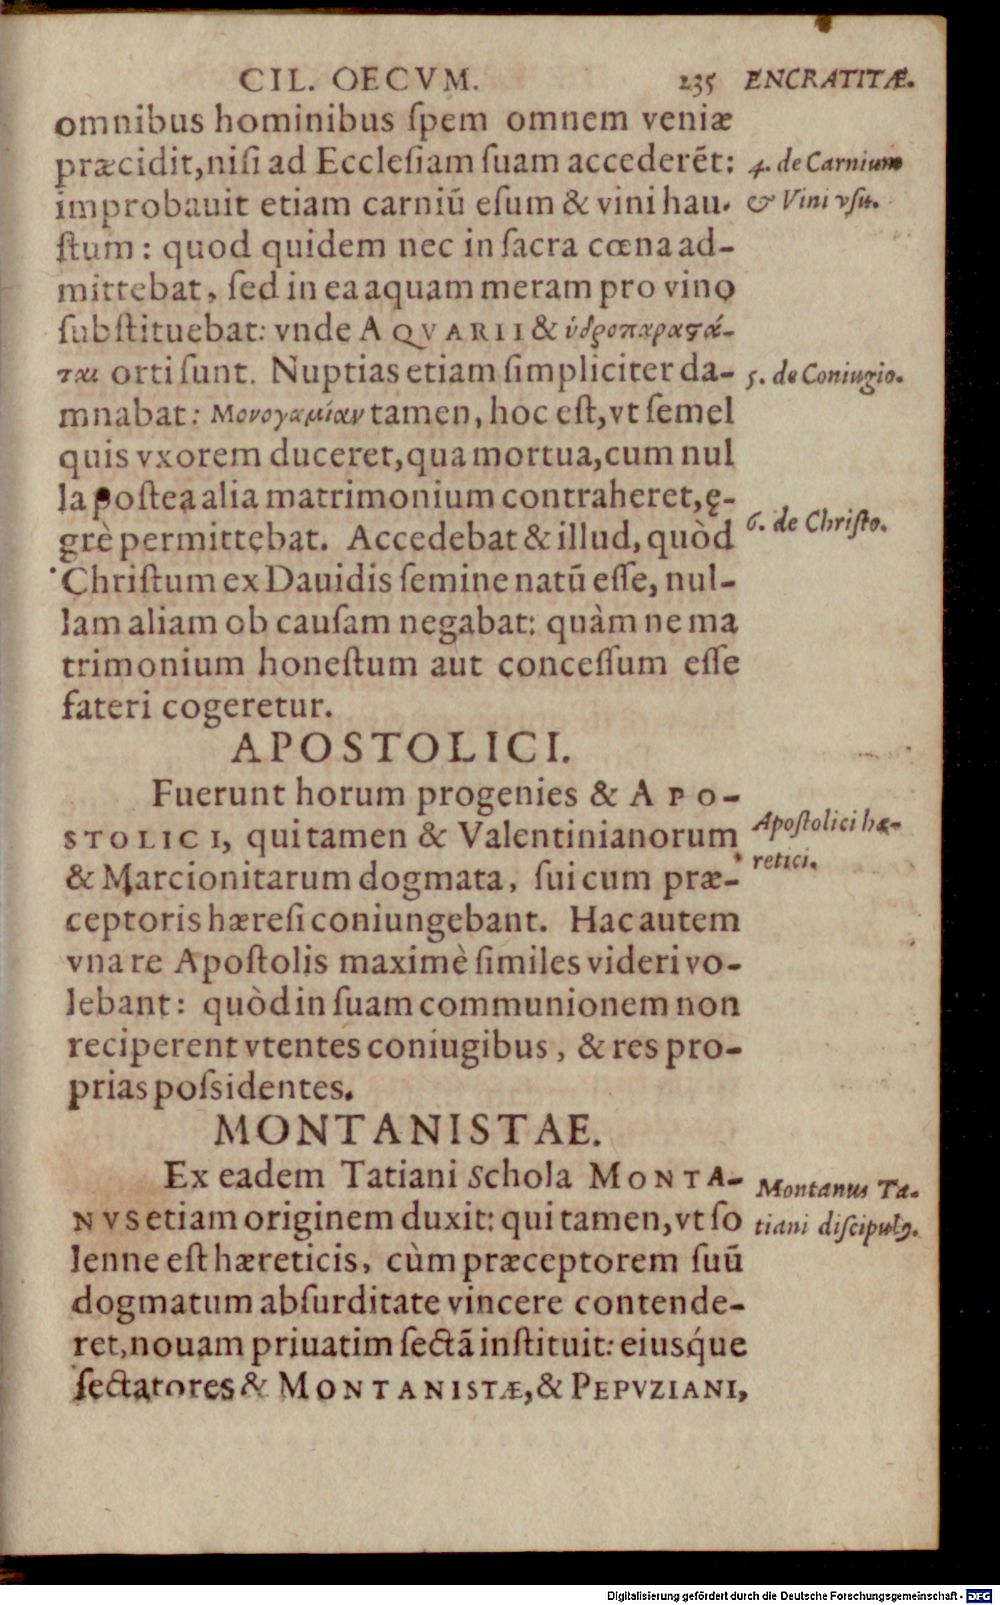 CIL. OECVM. 235 ENCRATITÆ.
omnibus hominibus ſpem omnem veniæ
præcidit, niſi ad Eccleſiam ſuam accederẽt:
4. de Carnium
improbauit etiam carniũ eſum & vini hau-
& Vini vſu.
ſtum: quod quidem nec in ſacra cœna ad-
mittebat, ſed in ea aquam meram pro vino
ſubſtituebat: vnde AQVARII & ὑδροπαραϛά-
ται orti ſunt. Nuptias etiam ſimpliciter da-
5. de Coniugio.
mnabat: Μονογαμίαν tamen, hoc eſt, vt ſemel
quis vxorem duceret, qua mortua, cum nul
la poſtea alia matrimonium contraheret, ę-
6. de Chriſto.
grè permittebat. Accedebat & illud, quòd
Chriſtum ex Dauidis ſemine natũ eſſe, nul-
lam aliam ob cauſam negabat: quàm ne ma
trimonium honeſtum aut conceſſum eſſe
fateri cogeretur.
APOSTOLICI.
Fuerunt horum progenies & APO-
Apoſtolici hæ-
STOLICI, qui tamen & Valentinianorum
retici.
& Marcionitarum dogmata, ſui cum præ-
ceptoris hæreſi coniungebant. Hac autem
vna re Apoſtolis maximè ſimiles videri vo-
lebant: quòd in ſuam communionem non
reciperent vtentes coniugibus, & res pro-
prias poſsidentes.
MONTANISTAE.
Ex eadem Tatiani Schola MONTA-
Montanus Ta-
NVS etiam originem duxit: qui tamen, vt ſo
tiani diſcipulꝰ.
lenne eſt hæreticis, cùm præceptorem ſuũ
dogmatum abſurditate vincere contende-
ret, nouam priuatim ſectã inſtituit: eiusq́ue
ſectatores & MONTANISTÆ, & PEPVZIANI,
Digitalisierung gefördert durch die Deutsche Forschungsgemeinschaft - DFG